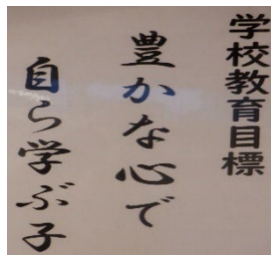 学校教育目標
豊かな心で
自ら学ぶ子